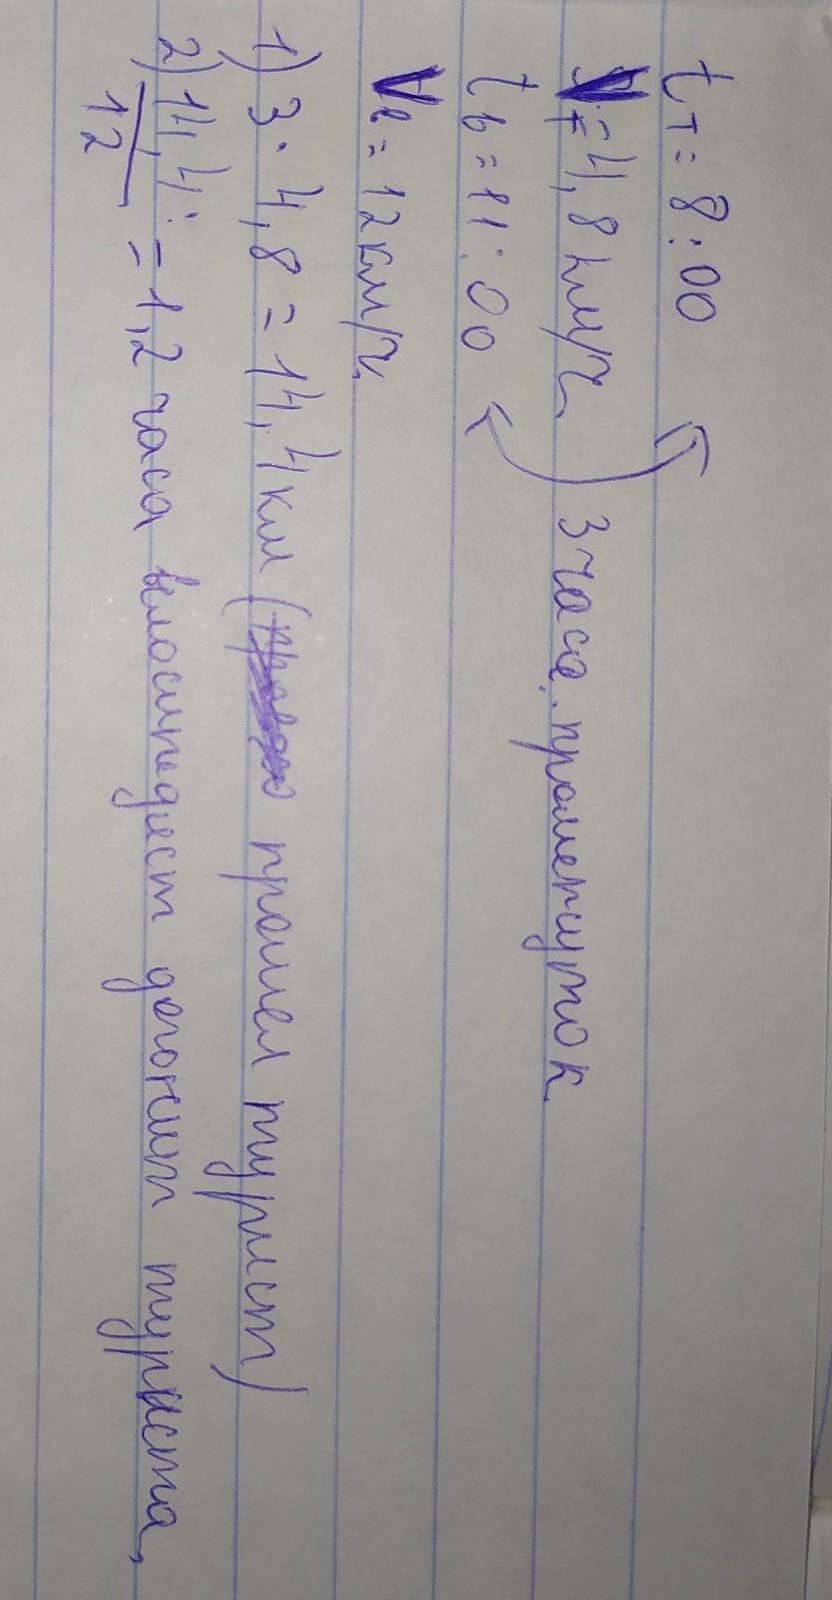 tт = 8:00
Vт = 4,8 км/ч
3 часа промежуток
tв = 11:00
Vв = 12 км/ч
1) 3 · 4,8 = 14,4 км (прошел турист)
2) 14,4 : = 1,2 часа велосипедист догонит туриста,
12